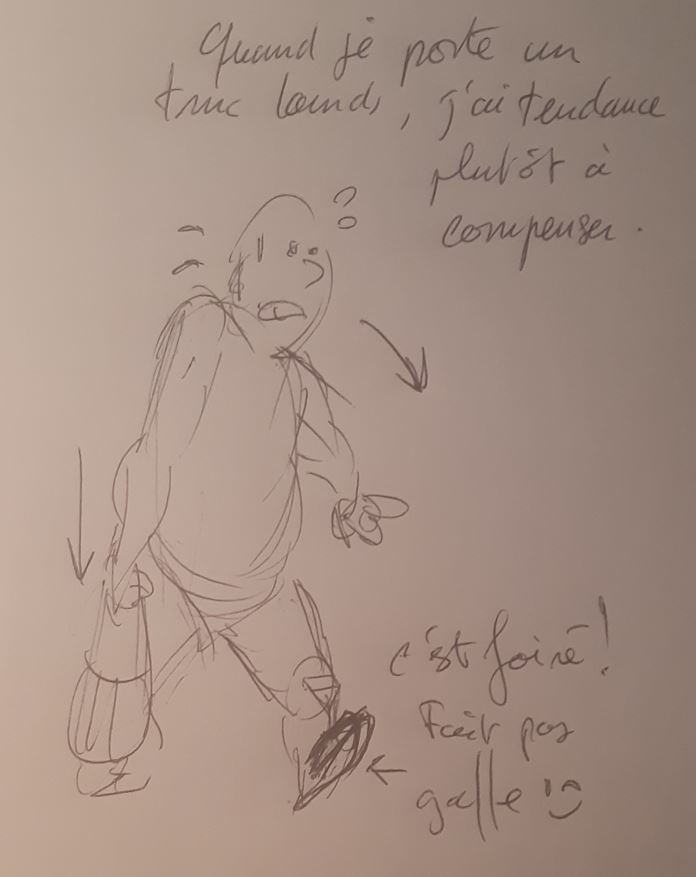 Quand je porte un
truc lourd, j'ai tendance
plutôt à
compenser.
??
c'est foiré !
Fait pas
gaffe :)